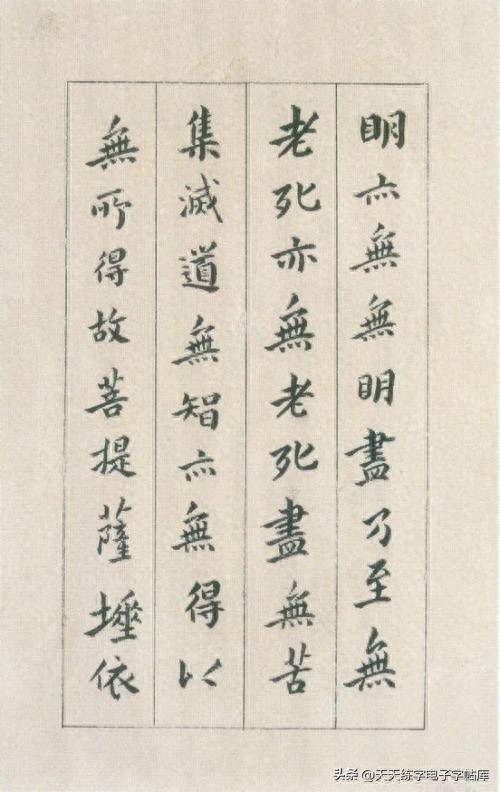 明亦無無明盡乃至無
老死亦無老死盡無苦
集滅道無智亦無得以
無所得故菩提薩埵依
头条 @天天练字电子字帖库